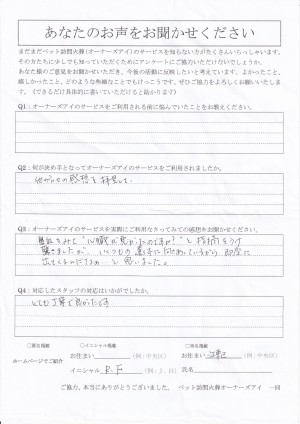 あなたのお声をお聞かせください
まだまだペット訪問火葬(オーナーズアイ)のサービスを知らない方がたくさんいらっしゃいます。
その方たちに少しでも知っていただくためにアンケートにご協力いただけないでしょうか。
あなた様のご意見をお聞かせいただき、今後の活動に反映したいと考えています。よかったこと、
嬉しかったこと、どのような些細なことでもけっこうです。ぜひご協力をよろしくお願いいたします。
(できるだけ具体的に書いていただけると助かります)
Q1:オーナーズアイのサービスをご利用される前に悩んでいたことをお教えください。
Q2:何が決め手となってオーナーズアイのサービスをご利用されましたか。
他の方々の感想を拝見して。
Q3:オーナーズアイのサービスを実際にご利用なさってみての感想をお聞かせください。
をみて"心臓が悪かったのですか?"と指摘をうけ
驚きましたが、いくつもの
と思いました。
Q4:対応したスタッフの対応はいかがでしたか。
とても丁寧で良かったです
□匿名掲載 ○イニシャル掲載 □実名掲載
ホームページでご紹介
お住まい (例:中央区) お住まい (例:中央区)
イニシャル R.F (例:J.H) 氏名
ご協力、本当にありがとうございました。 ペット訪問火葬オーナーズアイ 一同